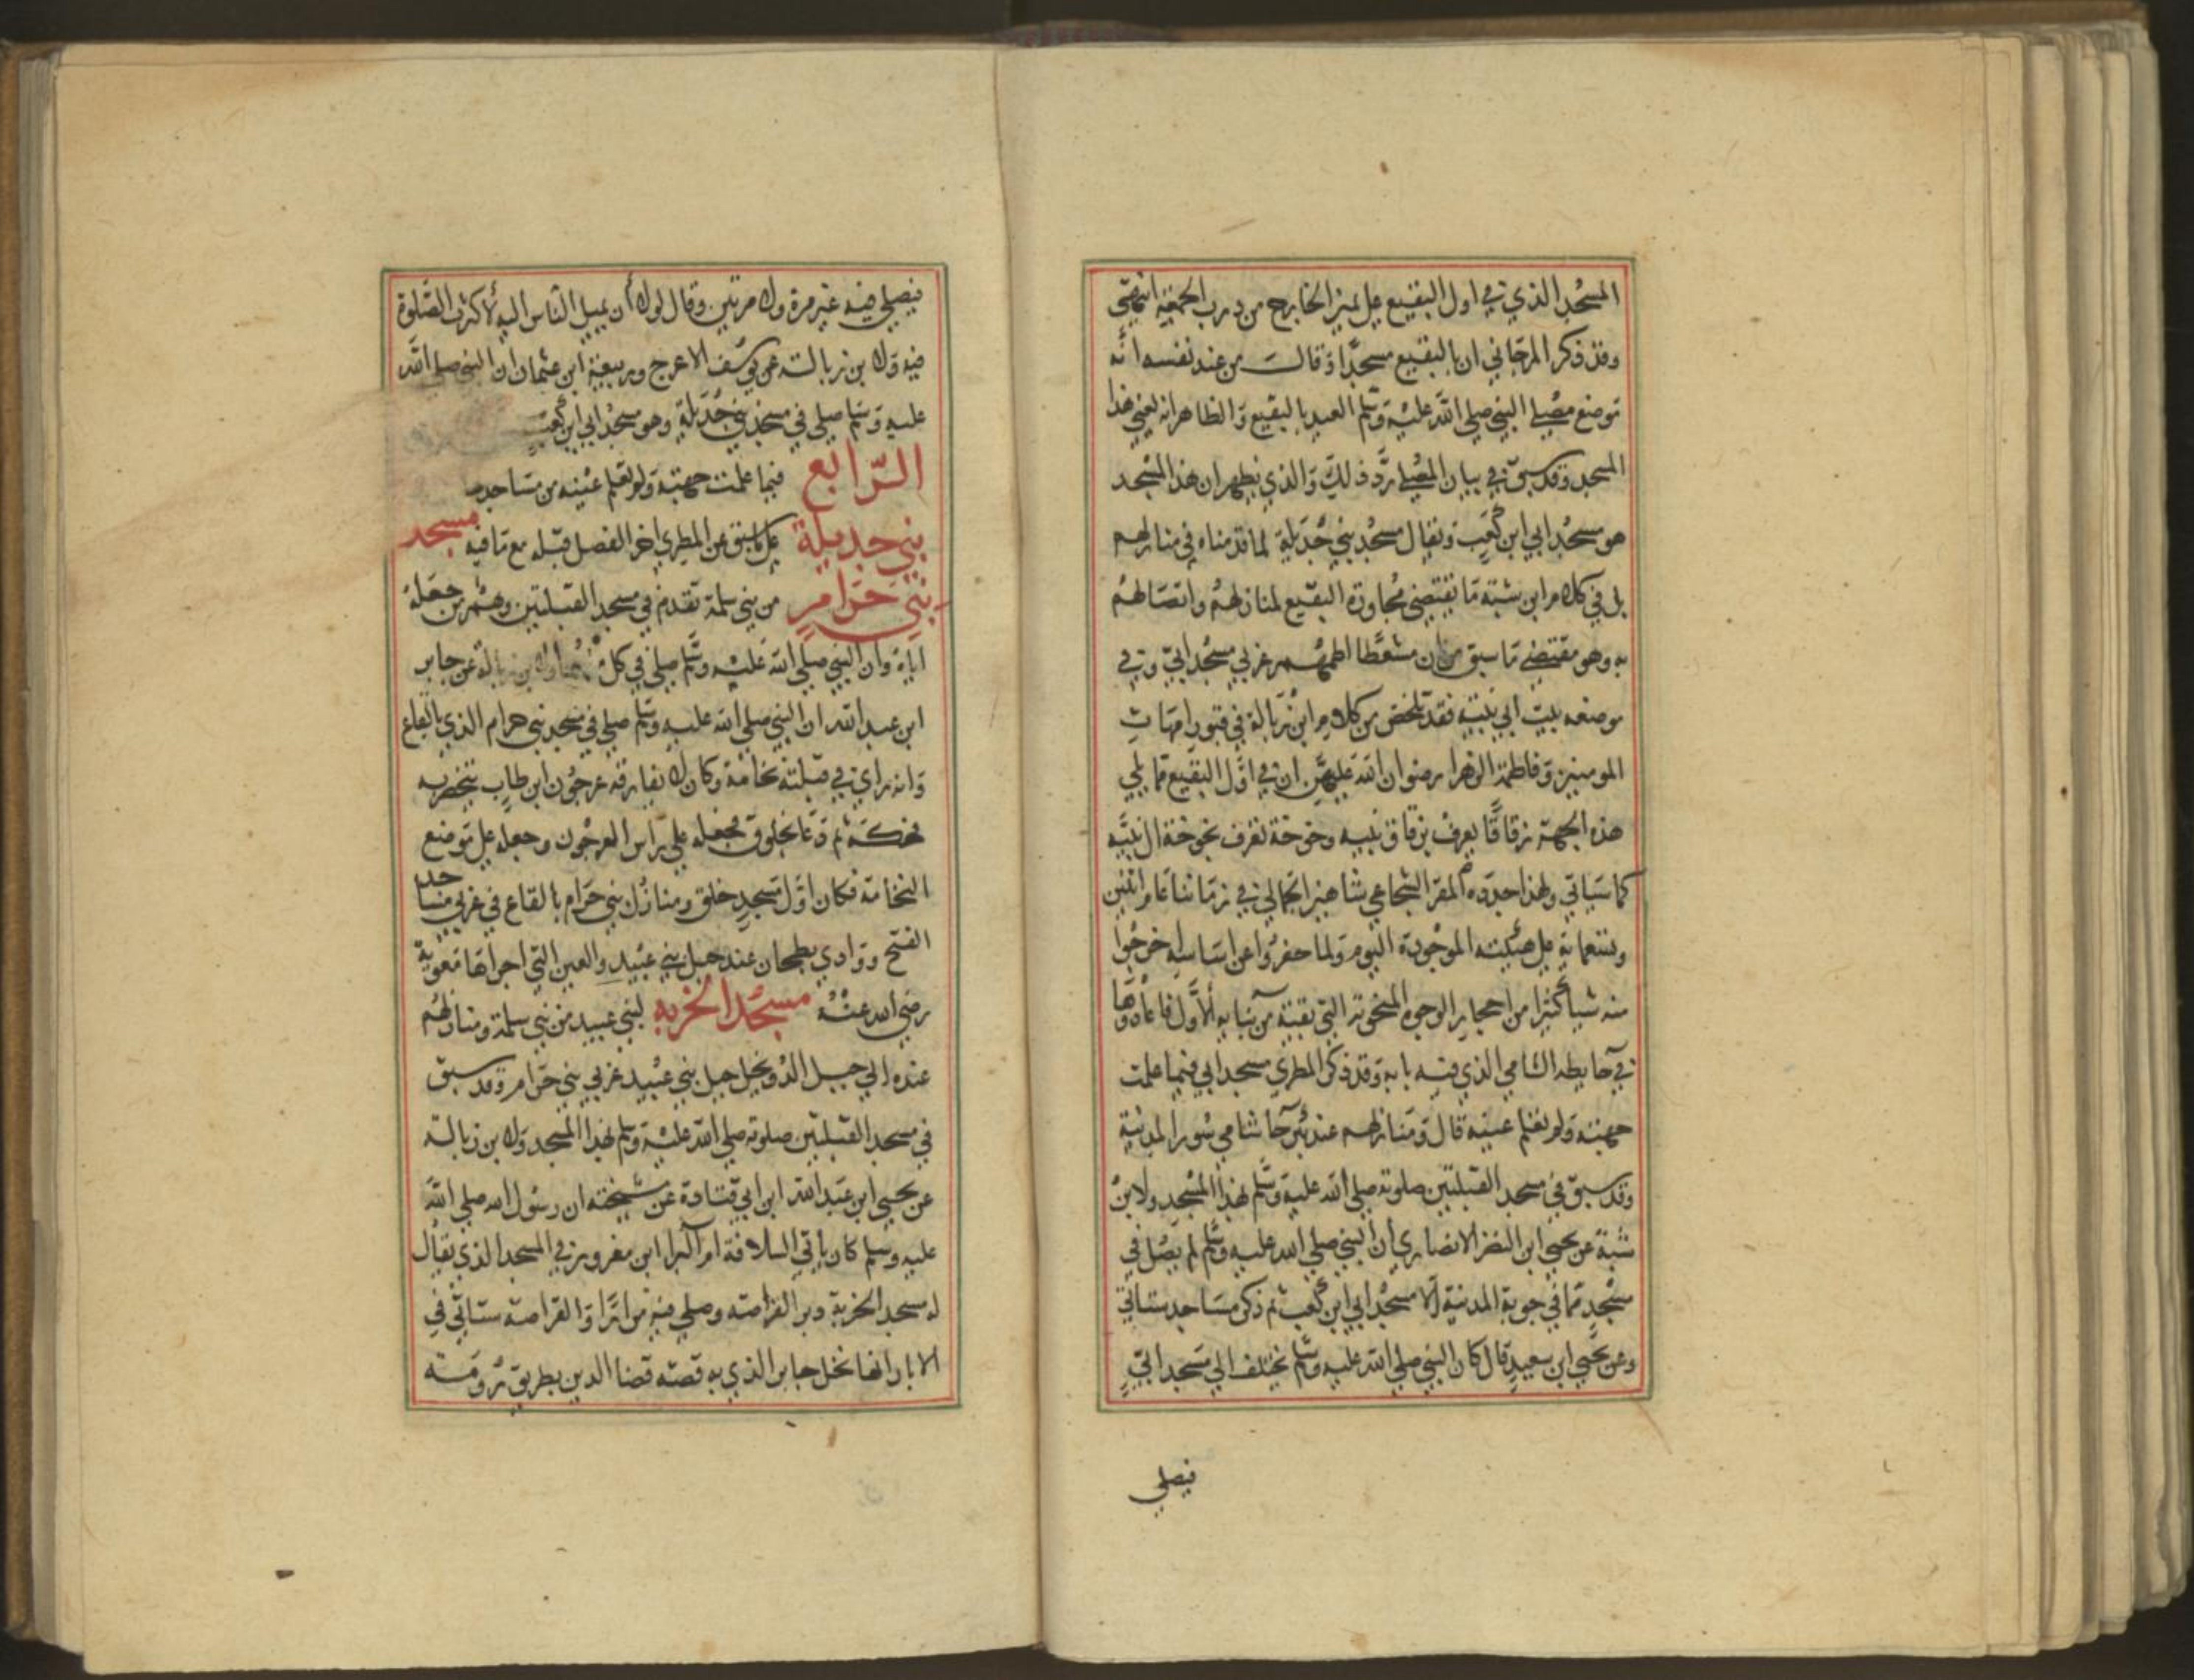 المسجد الذي في اول البقيع على يمين الخارج من درب الجمعة انتهى
وقد ذكر المرجاني ان بالبقيع مسجدا وقال من عند نفسه انه
موضع مصلي النبي صلى الله عليه وسلم العيد بالبقيع والظاهر انه يعني هذا
المسجد وقد سبق في بيان المصلي رد ذلك والذي يظهر ان هذا المسجد
هو مسجد ابي ابن كعب ويقال مسجد بني جديلة لما قدمناه في منازلهم
بل في كلام ابن شبة ما يقتضي مجاورة البقيع لمنازلهم واتصالهم
به وهو مقتضي ما سبق من ان مشعطا اطمهم غربي مسجد ابي وفي
موضعه بيت ابي نبيه فقد تلخص من كلام ابن زبالة في قبور امهات
المومنين وفاطمة الزهرا رضوان الله عليهن ان في اول البقيع مما يلي
هذه الجهة زقاقا يعرف بزقاق نبيه وخوخة تعرف بخوخة ال نبيه
كما سياتي ولهذا جدده المقر الشجاعي شاهين الجمالي في زماننا عام اثنين
وتسعماية على هيئته الموجودة اليوم ولما حفروا عن اساسه اخرجوا
منه شيا كثيرا من احجار الوجوه المنحوتة التي بقيت من بنايه الاول فاعادوها
في حايطه الشامي الذي فيه بابه وقد ذكر المطري مسجد ابي فيما علمت
جهته ولم تعلم عينه قال ومنازلهم عند بئر حا شامي سور المدينة
وقد سبق في مسجد القبلتين صلوته صلى الله عليه وسلم بهذا المسجد ولابن
شبة عن يحيى ابن النضر الانصاري ان النبي صلى الله عليه وسلم لم يصل في
مسجد مما في جوبة المدينة الا مسجد ابي ابن كعب ثم ذكر مساجد ستاتي
وعن يحيى ابن سعيد قال كان النبي صلى الله عليه وسلم يختلف الي مسجد ابي
فيصلي
فيصلي فيه غير مرة ولا مرتين وقال لولا أن يميل الناس اليه لأكثرت الصلوة
فيه ولا بن زبالة عن يوسف الاعرج وربيعة ابن عثمان ان النبي صلى الله
عليه وسلم صلى في مسجد بني جديلة وهو مسجد ابي ابن كعب
الرابع فيما علمت جهته ولم تعلم عينه من مساجد
بني جديلة على ما سبق عن المطري اخر الفصل قبله مع ما فيه مسجد
بني حرام من بني سلمة تقدم في مسجد القبلتين وهم من جعله
اياه وان النبي صلى الله عليه وسلم صلى في كل منهما ولا بن زبالة عن جابر
ابن عبد الله ان النبي صلى الله عليه وسلم صلى في مسجد بني حرام الذي بالقاع
وانه راي في قبلته نخامة وكان لا يفارقه عرجون ابن طاب يتخصر به
فحكه ثم دعا بخلوق فجعله على راس العرجون وجعله على موضع
النخامة فكان اول مسجد خلق ومنازل بني حرام بالقاع في غربي مساجد
الفتح ووادي بطحان عند جبل بني عبيد والعين التي اجراها معوية
رضي الله عنه مسجد الخربه لبني عبيد من بني سلمة ومنازلهم
عنده الي جبل الدويخل جبل بني عبيد غربي بني حرام وقد سبق
في مسجد القبلتين صلوته صلى الله عليه وسلم بهذا المسجد ولا بن زبالة
عن يحيى ابن عبد الله ابن ابي قتادة عن مشيخته ان رسول الله صلى الله
عليه وسلم كان ياتي السلافة ام البرا ابن معرور في المسجد الذي يقال
له مسجد الخربة دبر القراصه وصلي فيه مرارا والقراصة ستاتي في
الابار انها نخل جابر الذي به قصة قضا الدين بطريق رومه